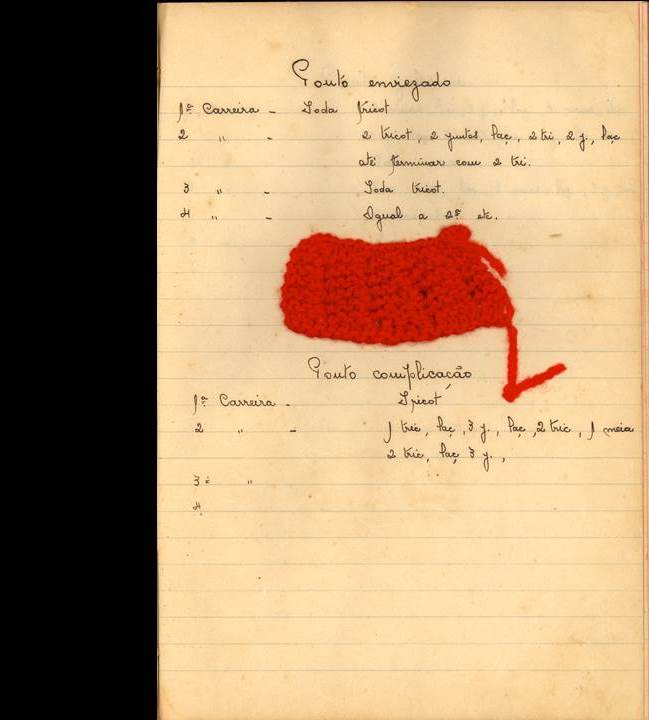 Ponto enviezado
1ª Carreira - Toda tricot
2 " - 2 tricot, 2 juntos, laç, 2 tri, 2 j, laç
até terminar com 2 tri.
3 " - Toda tricot.
4 " - Igual a 2ª etc.
Ponto complicação
1ª Carreira - Tricot
2 " - 1 tric, laç, 3 j., laç, 2 tric, 1 meia
2 tric, laç 3 j.,
3ª "
4